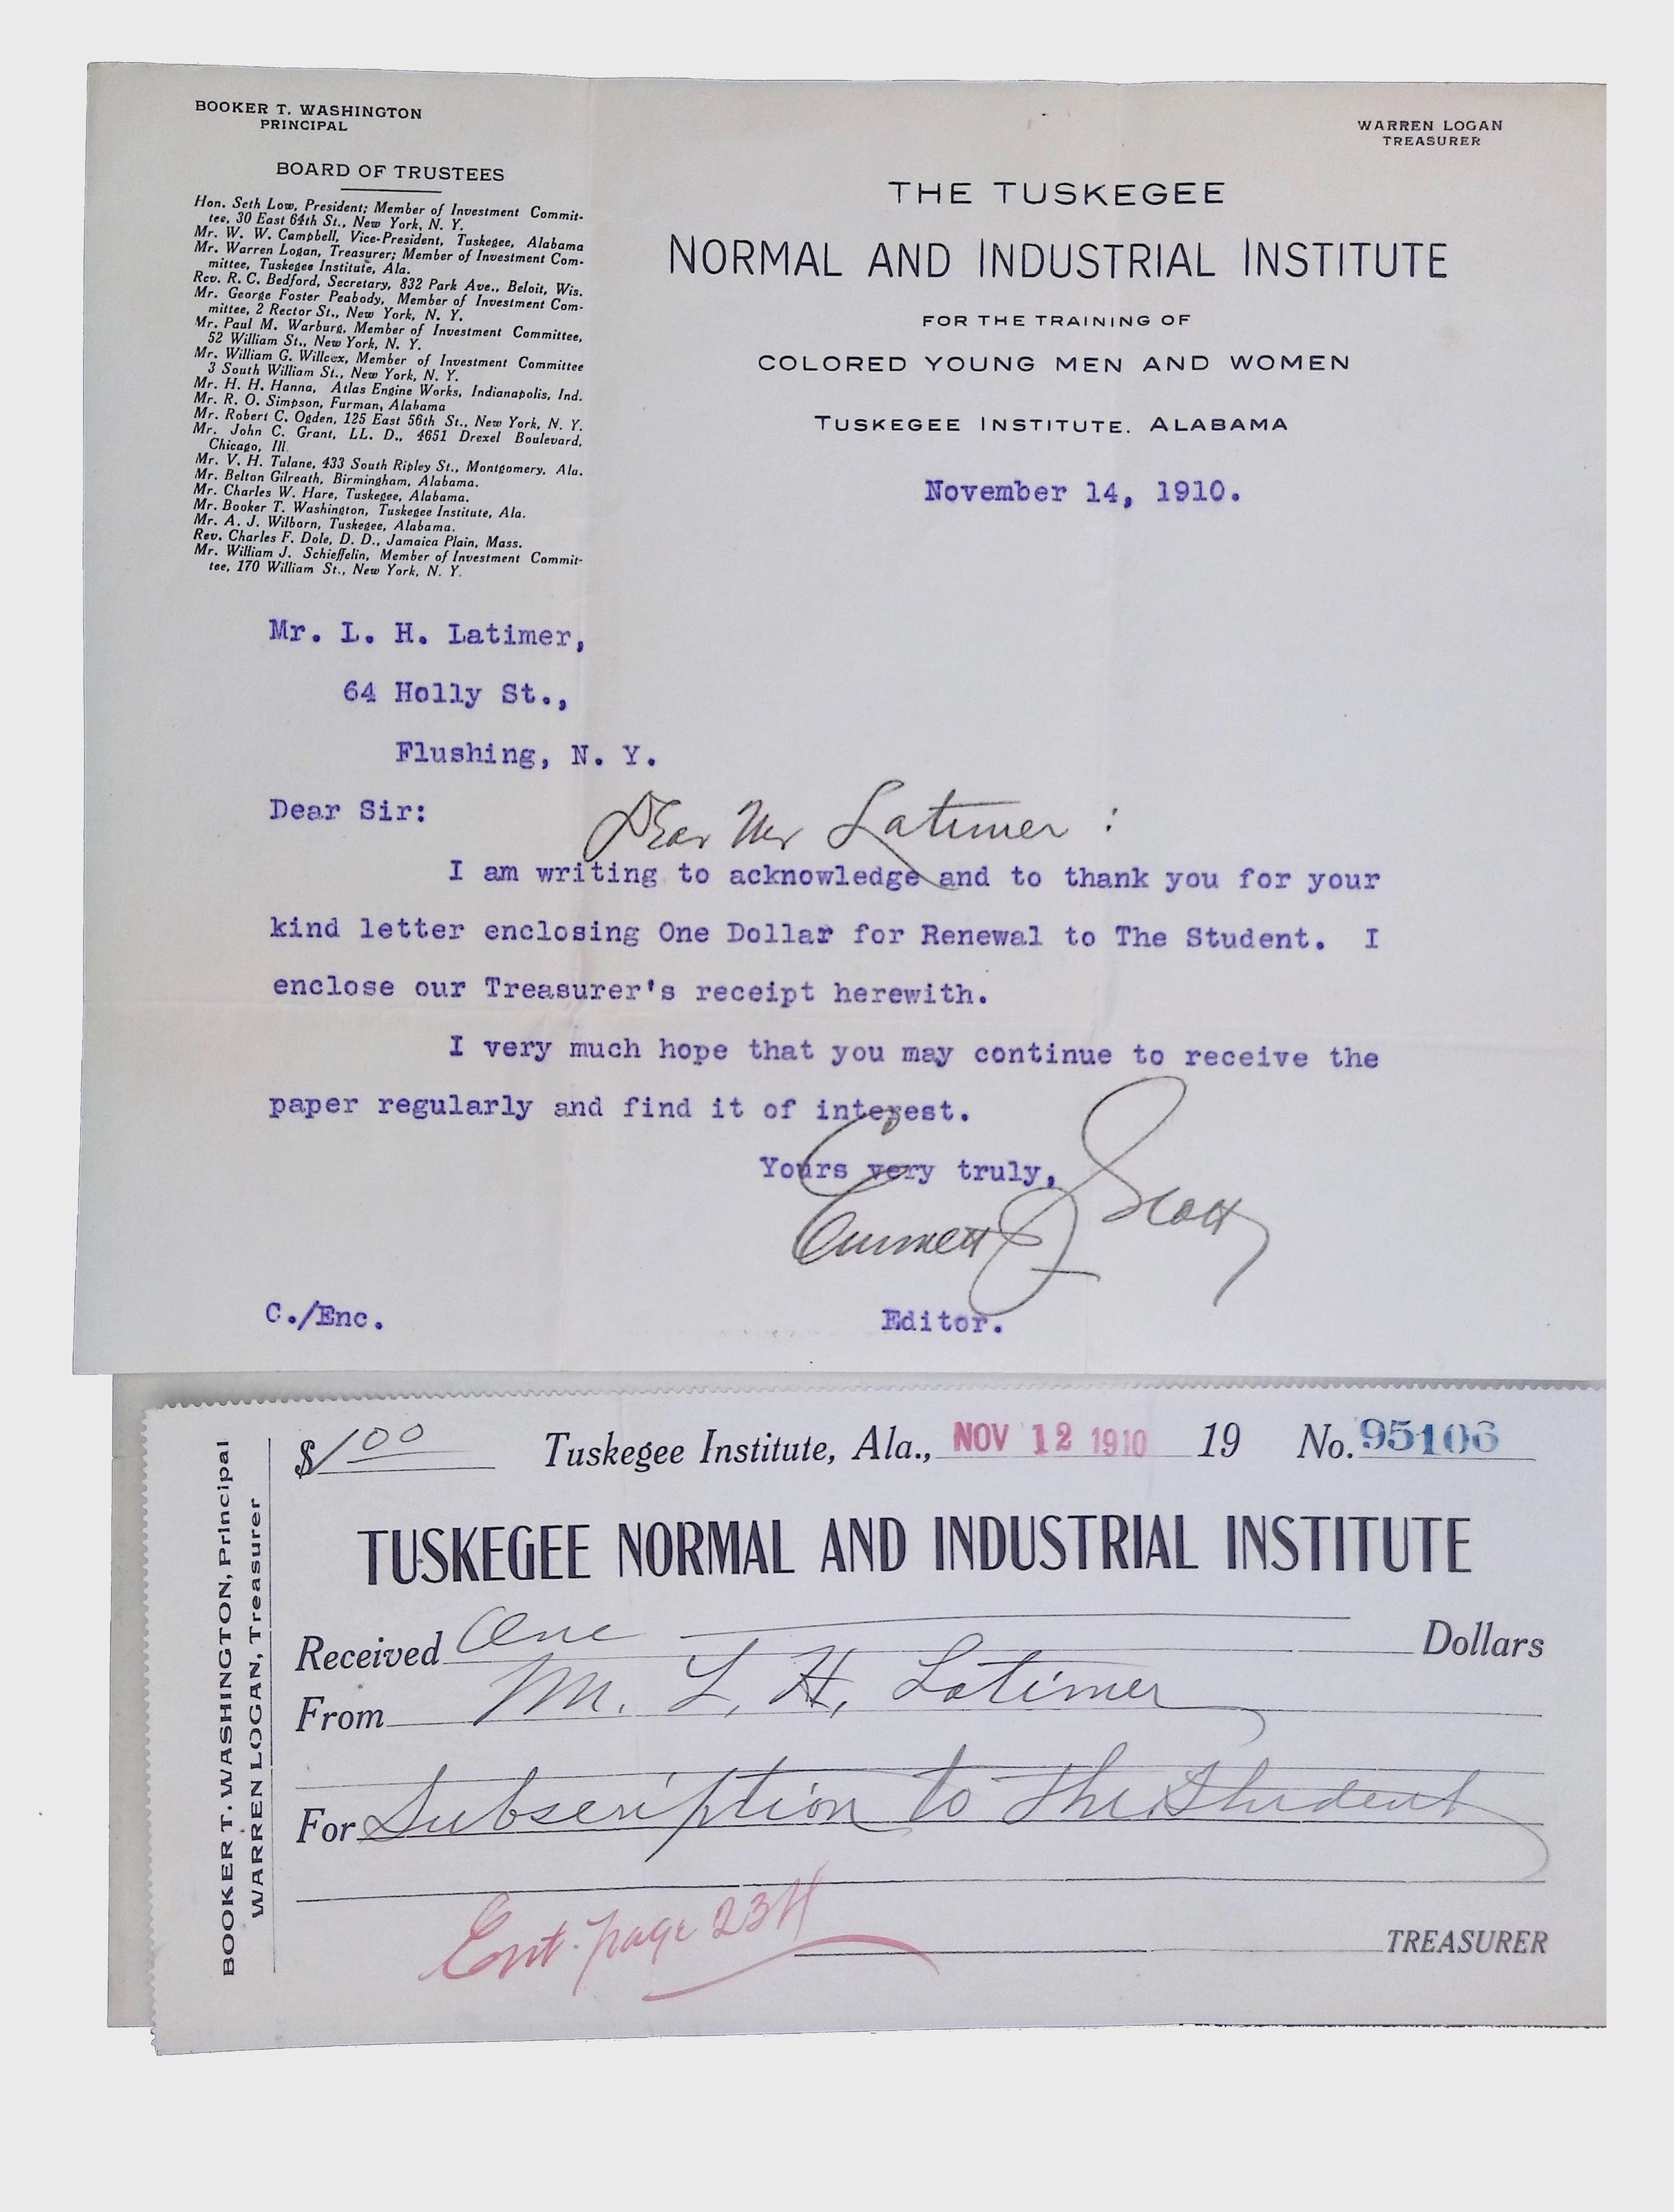 BOOKER T. WASHINGTON
PRINCIPAL
WARREN LOGAN
TREASURER
BOARD OF TRUSTEES
Hon. Seth Low, President; Member of Investment Commit-
tee, 30 East 64th St., New York, N. Y.
Mr. W. W. Campbell, Vice-President, Tuskegee, Alabama
Mr. Warren Logan, Treasurer; Member of Investment Com-
mittee, Tuskegee Institute, Ala.
Rev. R. C. Bedford, Secretary, 832 Park Ave., Beloit, Wis.
Mr. George Foster Peabody, Member of Investment Com-
mittee, 2 Rector St., New York, N. Y.
Mr. Paul M. Warburg, Member of Investment Committee,
52 William St., New York, N. Y.
Mr. William G. Willcox, Member of Investment Committee
3 South William St., New York, N. Y.
Mr. H. H. Hanna, Atlas Engine Works, Indianapolis, Ind.
Mr. R. O. Simpson, Furman, Alabama
Mr. Robert C. Ogden, 125 East 56th St., New York, N. Y.
Mr. John C. Grant, LL. D., 4651 Drexel Boulevard,
Chicago, Ill.
Mr. V. H. Tulane, 433 South Ripley St., Montgomery, Ala.
Mr. Belton Gilreath, Birmingham, Alabama.
Mr. Charles W. Hare, Tuskegee, Alabama.
Mr. Booker T. Washington, Tuskegee Institute, Ala.
Mr. A. J. Wilborn, Tuskegee, Alabama.
Rev. Charles F. Dole, D. D., Jamaica Plain, Mass.
Mr. William J. Schieffelin, Member of Investment Commit-
tee, 170 William St., New York, N. Y.
THE TUSKEGEE
NORMAL AND INDUSTRIAL INSTITUTE
FOR THE TRAINING OF
COLORED YOUNG MEN AND WOMEN
TUSKEGEE INSTITUTE, ALABAMA
November 14, 1910.
Mr. L. H. Latimer,
64 Holly St.,
Flushing, N. Y.
Dear Sir:
Dear Mr Latimer :
I am writing to acknowledge and to thank you for your
kind letter enclosing One Dollar for Renewal to The Student. I
enclose our Treasurer's receipt herewith.
I very much hope that you may continue to receive the
paper regularly and find it of interest.
Yours very truly,
Emmett J Scott
C./Enc.
Editor.
BOOKER T. WASHINGTON, Principal
WARREN LOGAN, Treasurer
$1 00 Tuskegee Institute, Ala., NOV 12 1910 19 No. 95106
TUSKEGEE NORMAL AND INDUSTRIAL INSTITUTE
Received One Dollars
From Mr. L. H. Latimer
For Subscription to The Student
Ent. page 234
TREASURER